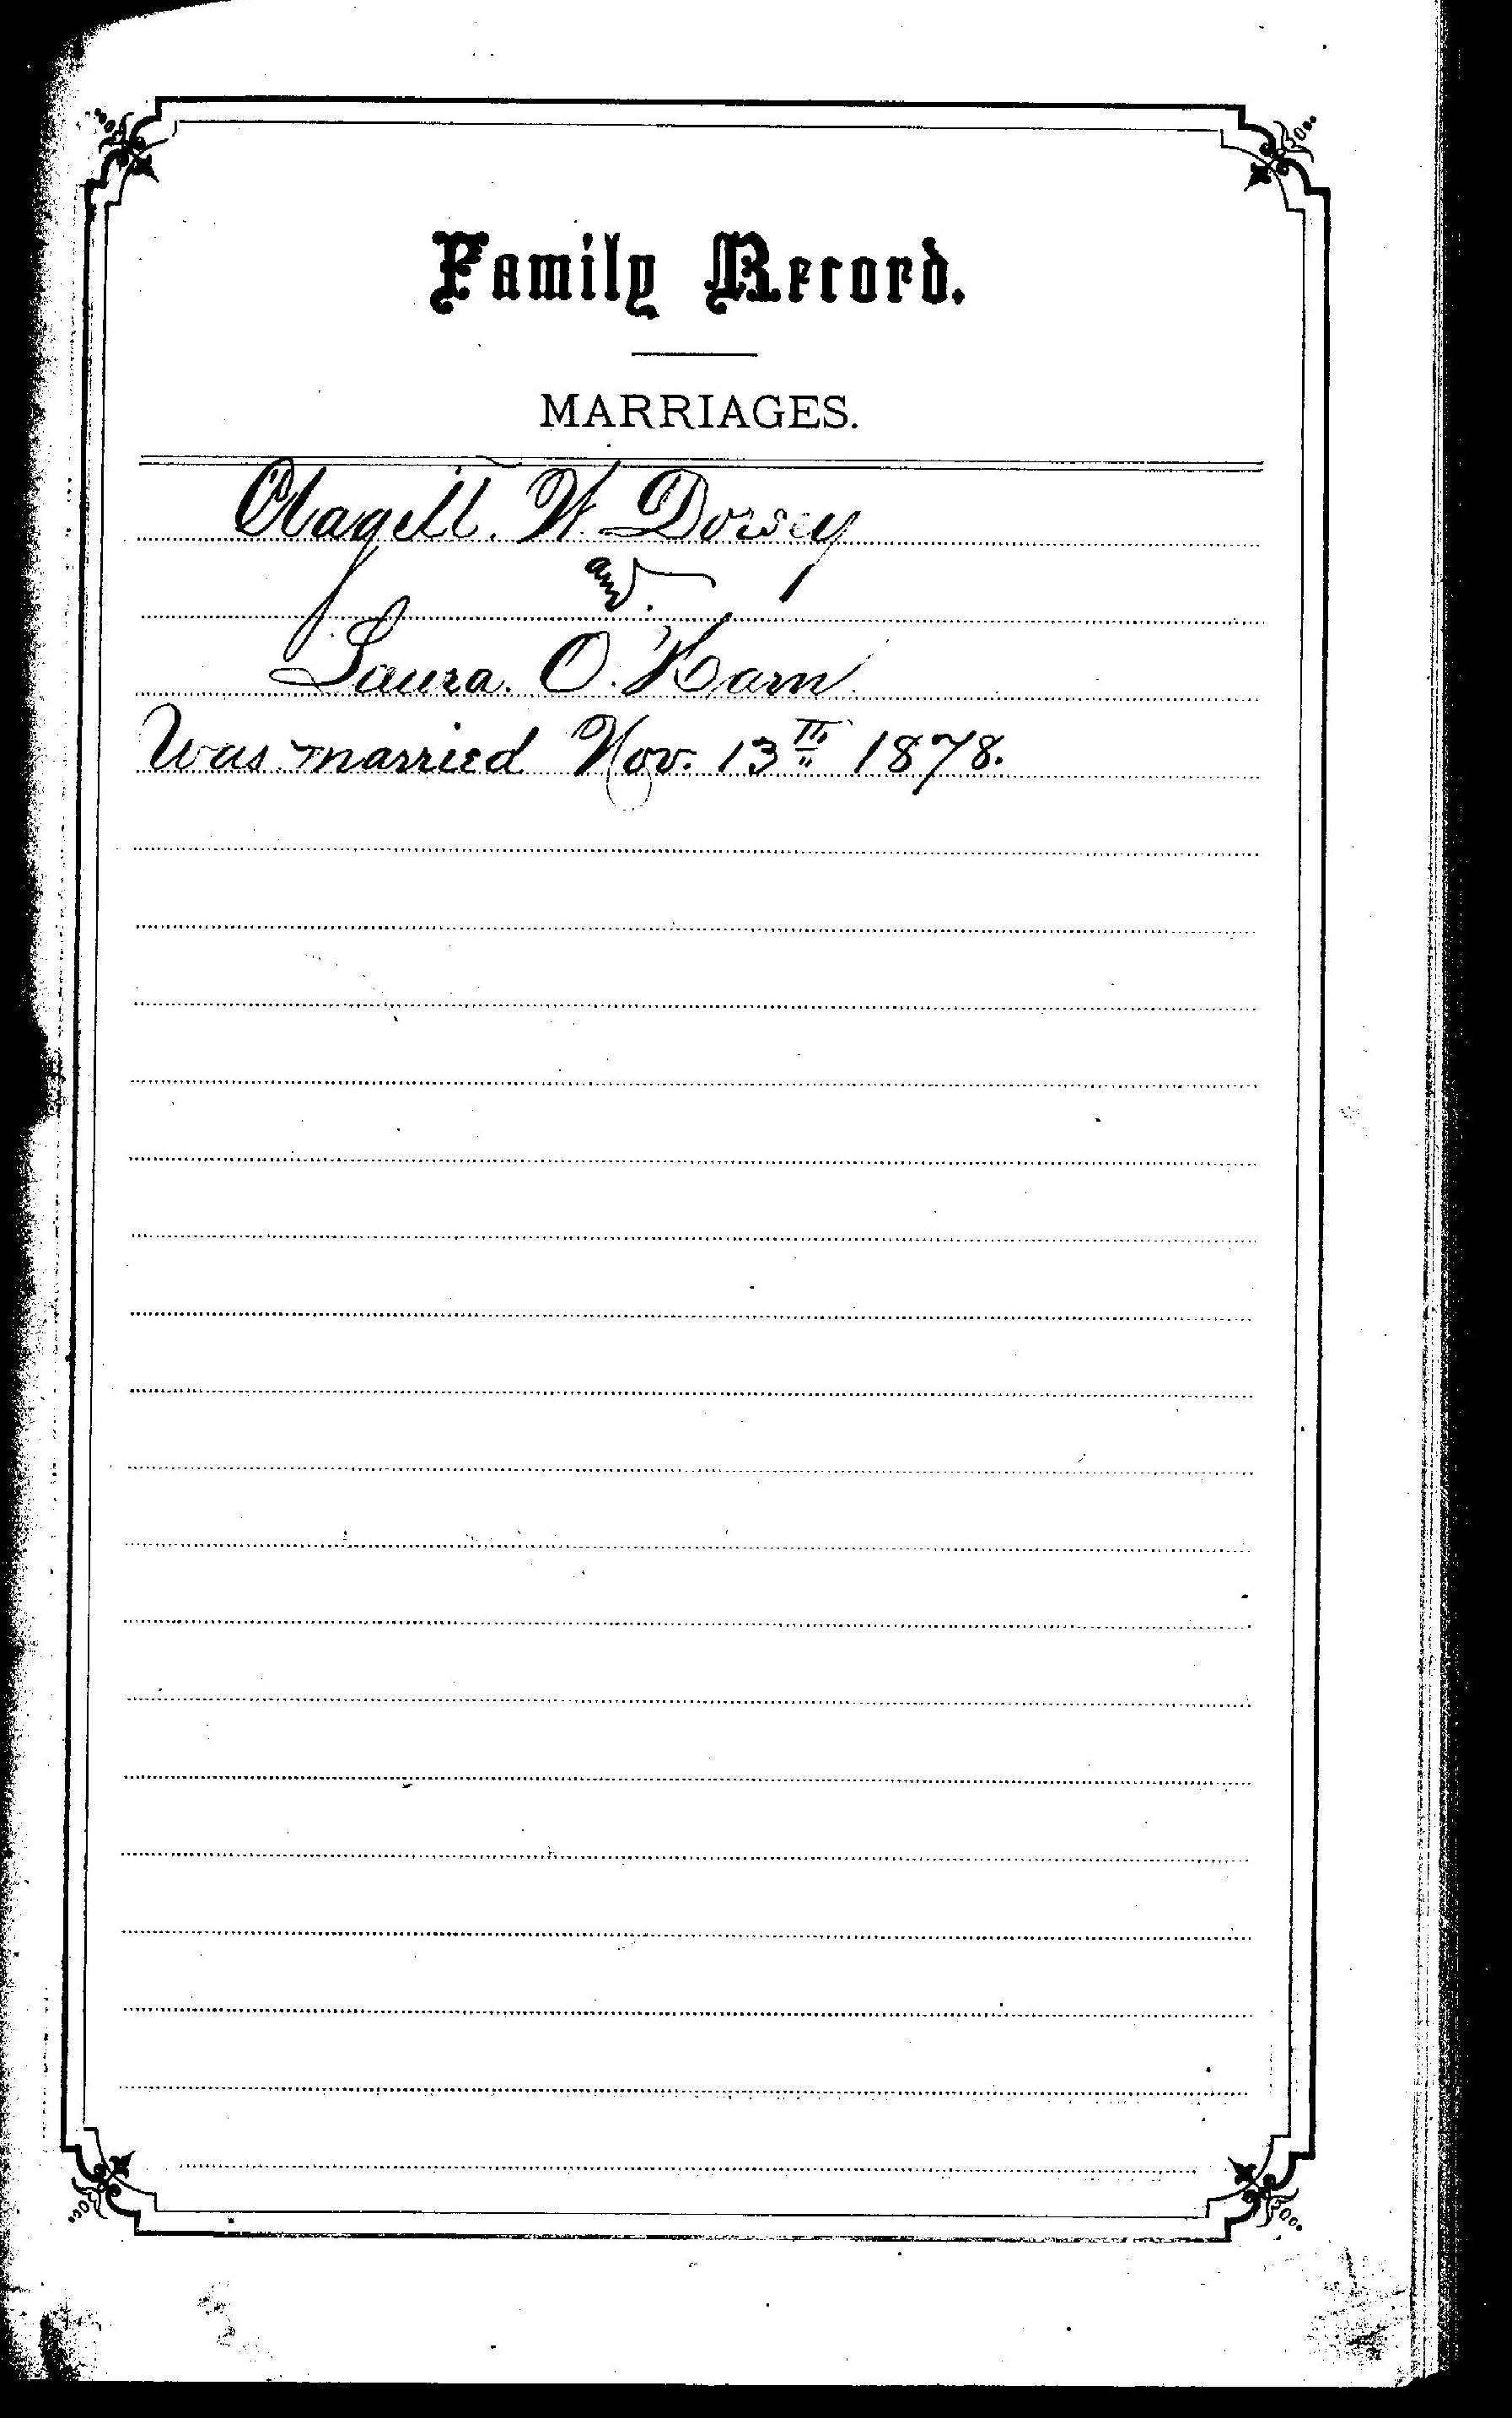 Family Record.
MARRIAGES.
Clagett. W. Dorsey
and.
Laura. O. Harn
Was married Nov. 13th 1878.